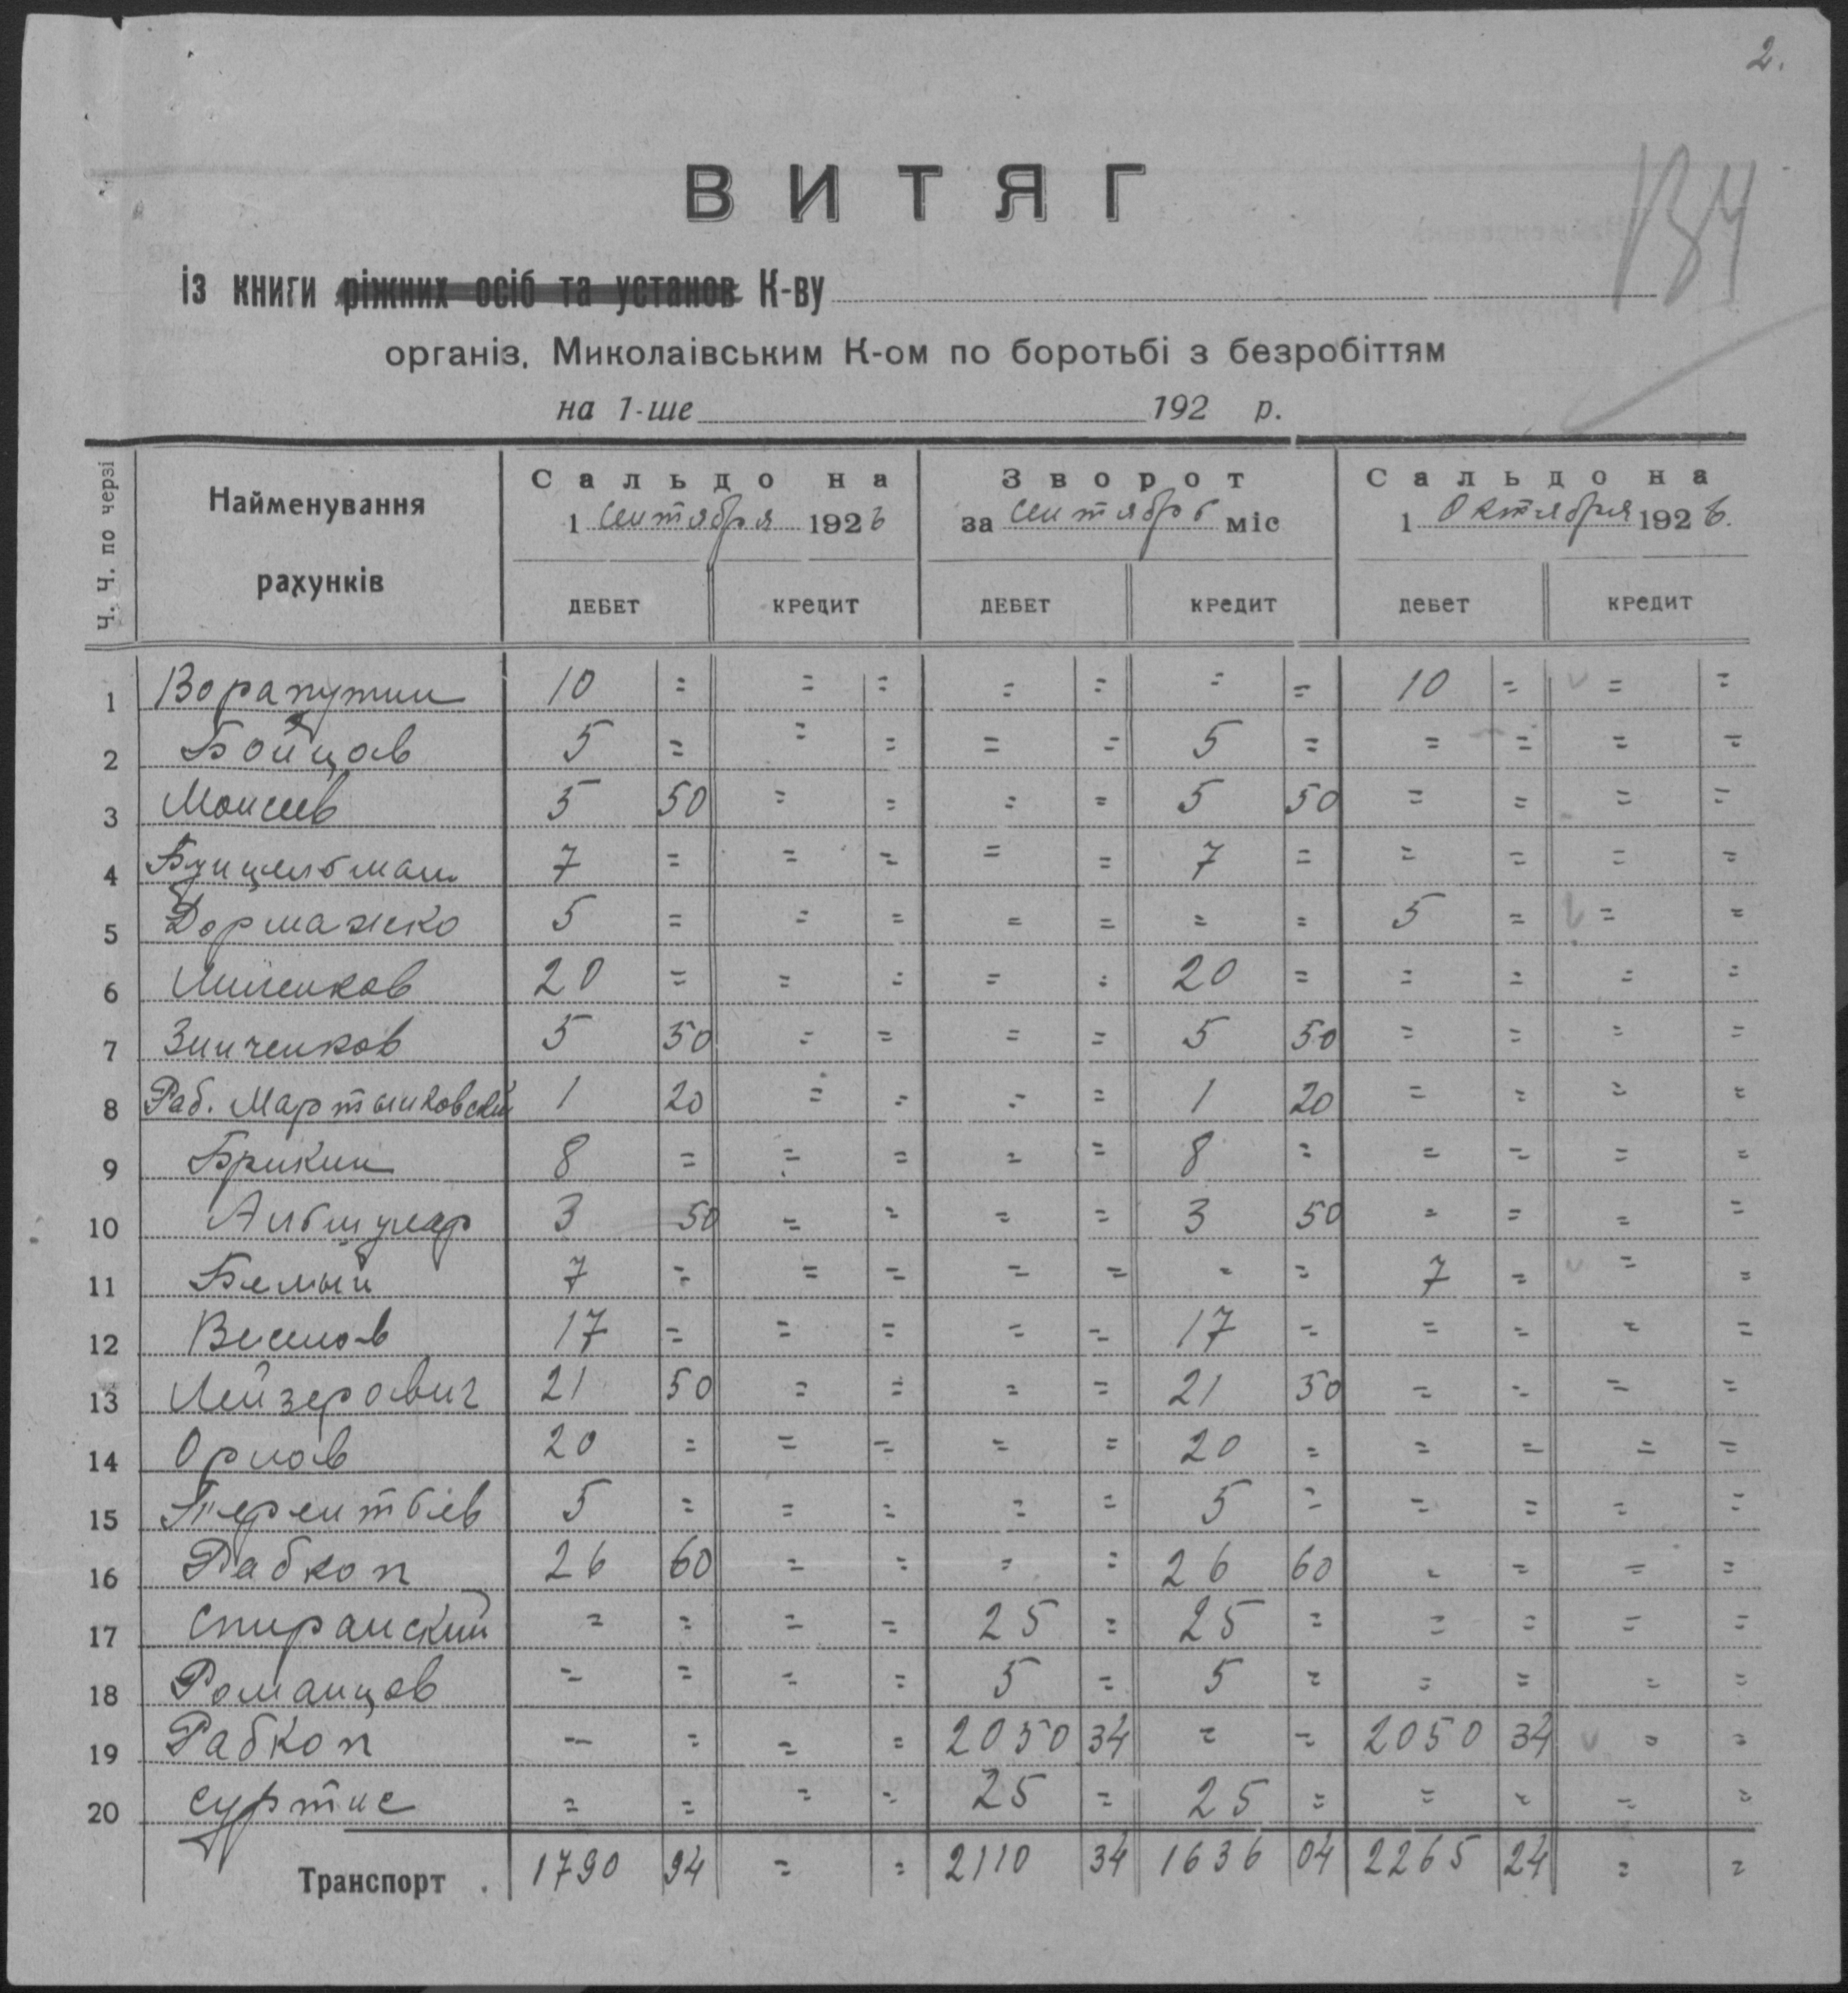 2.
134
ВИТЯГ
із книги ріжних осіб та установ К-ву
організ. Миколаівським К-ом по боротьбі з безробіттям
на 1-ше 192 р.
Ч. Ч. по черзі Найменування рахунків Сальдо на 1 сентября 1926 Зворот за сентябрь міс Сальдо на 1 Октября 1926.
ДЕБЕТ КРЕДИТ ДЕБЕТ КРЕДИТ ДЕБЕТ КРЕДИТ
1 Ворапутин 10 = = = = = = = 10 = = =
2 Бойцов 5 = = = = = 5 = = = = =
3 Моисеев 5 50 = = = = 5 50 = = = =
4 Бунцельман 7 = = = = = 7 = = = = =
5 Дормажко 5 = = = = = = = 5 = = =
6 20 = = = = = 20 = = = = =
7 Зинченков 5 50 = = = = 5 50 = = = =
8 Раб. Мартынковский 1 20 = = = = 1 20 = = = =
9 Брикин 8 = = = = = 8 = = = = =
10 Альтшулер 3 50 = = = = 3 50 = = = =
11 Белый 7 = = = = = = = 7 = = =
12 Веселов 17 = = = = = 17 = = = = =
13 Лейзерович 21 50 = = = = 21 50 = = = =
14 Орлов 20 = = = = = 20 = = = = =
15 Терентьев 5 = = = = = 5 = = = = =
16 Рабкоп 26 60 = = = = 26 60 = = = =
17 Спиранский = = = = 25 = 25 = = = = =
18 Романцов = = = = 5 = 5 = = = = =
19 Рабкоп = = = = 2050 34 = = 2050 34 = =
20 Суртис = = = = 25 = 25 = = = = =
Транспорт. 1790 94 = = 2110 34 1636 04 2265 24 = =